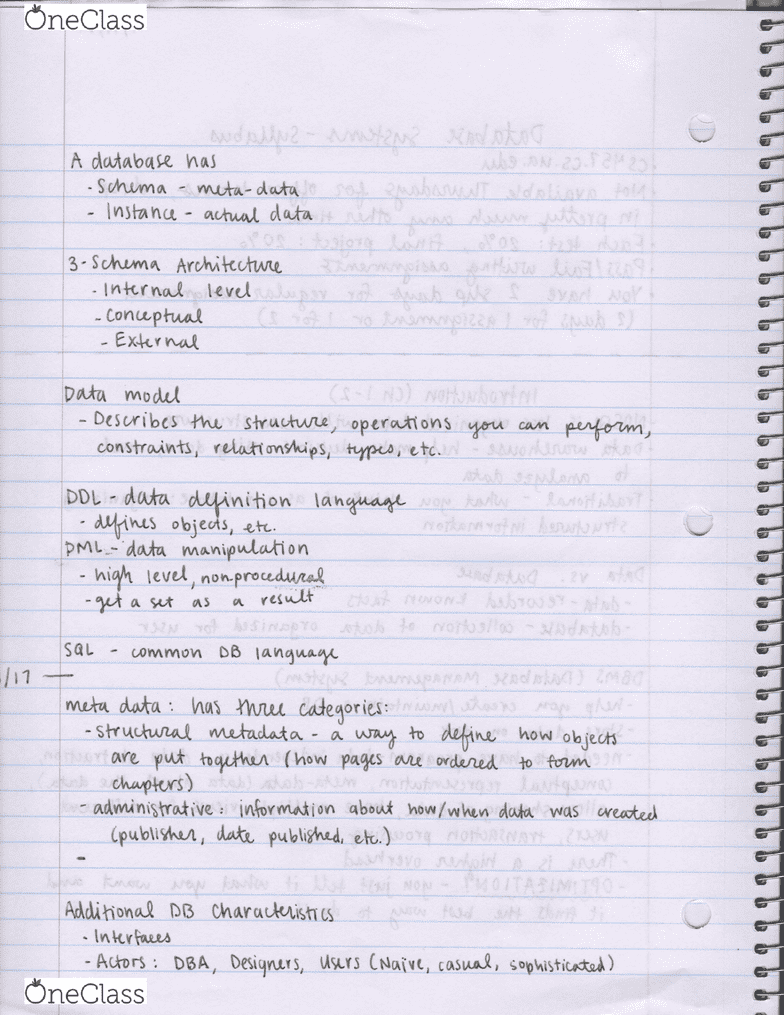 OneClass
A database has
- Schema - meta-data
- Instance - actual data
3-Schema Architecture
- Internal level
- Conceptual
- External
Data model
- Describes the structure, operations you can perform,
constraints, relationships, types, etc.
DDL - data definition language
- defines objects, etc.
DML - data manipulation
- high level, nonprocedural
- get a set as a result
SQL - common DB language
/17 —
meta data: has three categories:
- structural metadata - a way to define how objects
are put together (how pages are ordered to form
chapters)
- administrative: information about how/when data was created
(publisher, date published, etc.)
-
Additional DB Characteristics
- Interfaces
- Actors: DBA, Designers, Users (Naive, casual, sophisticated)
OneClass